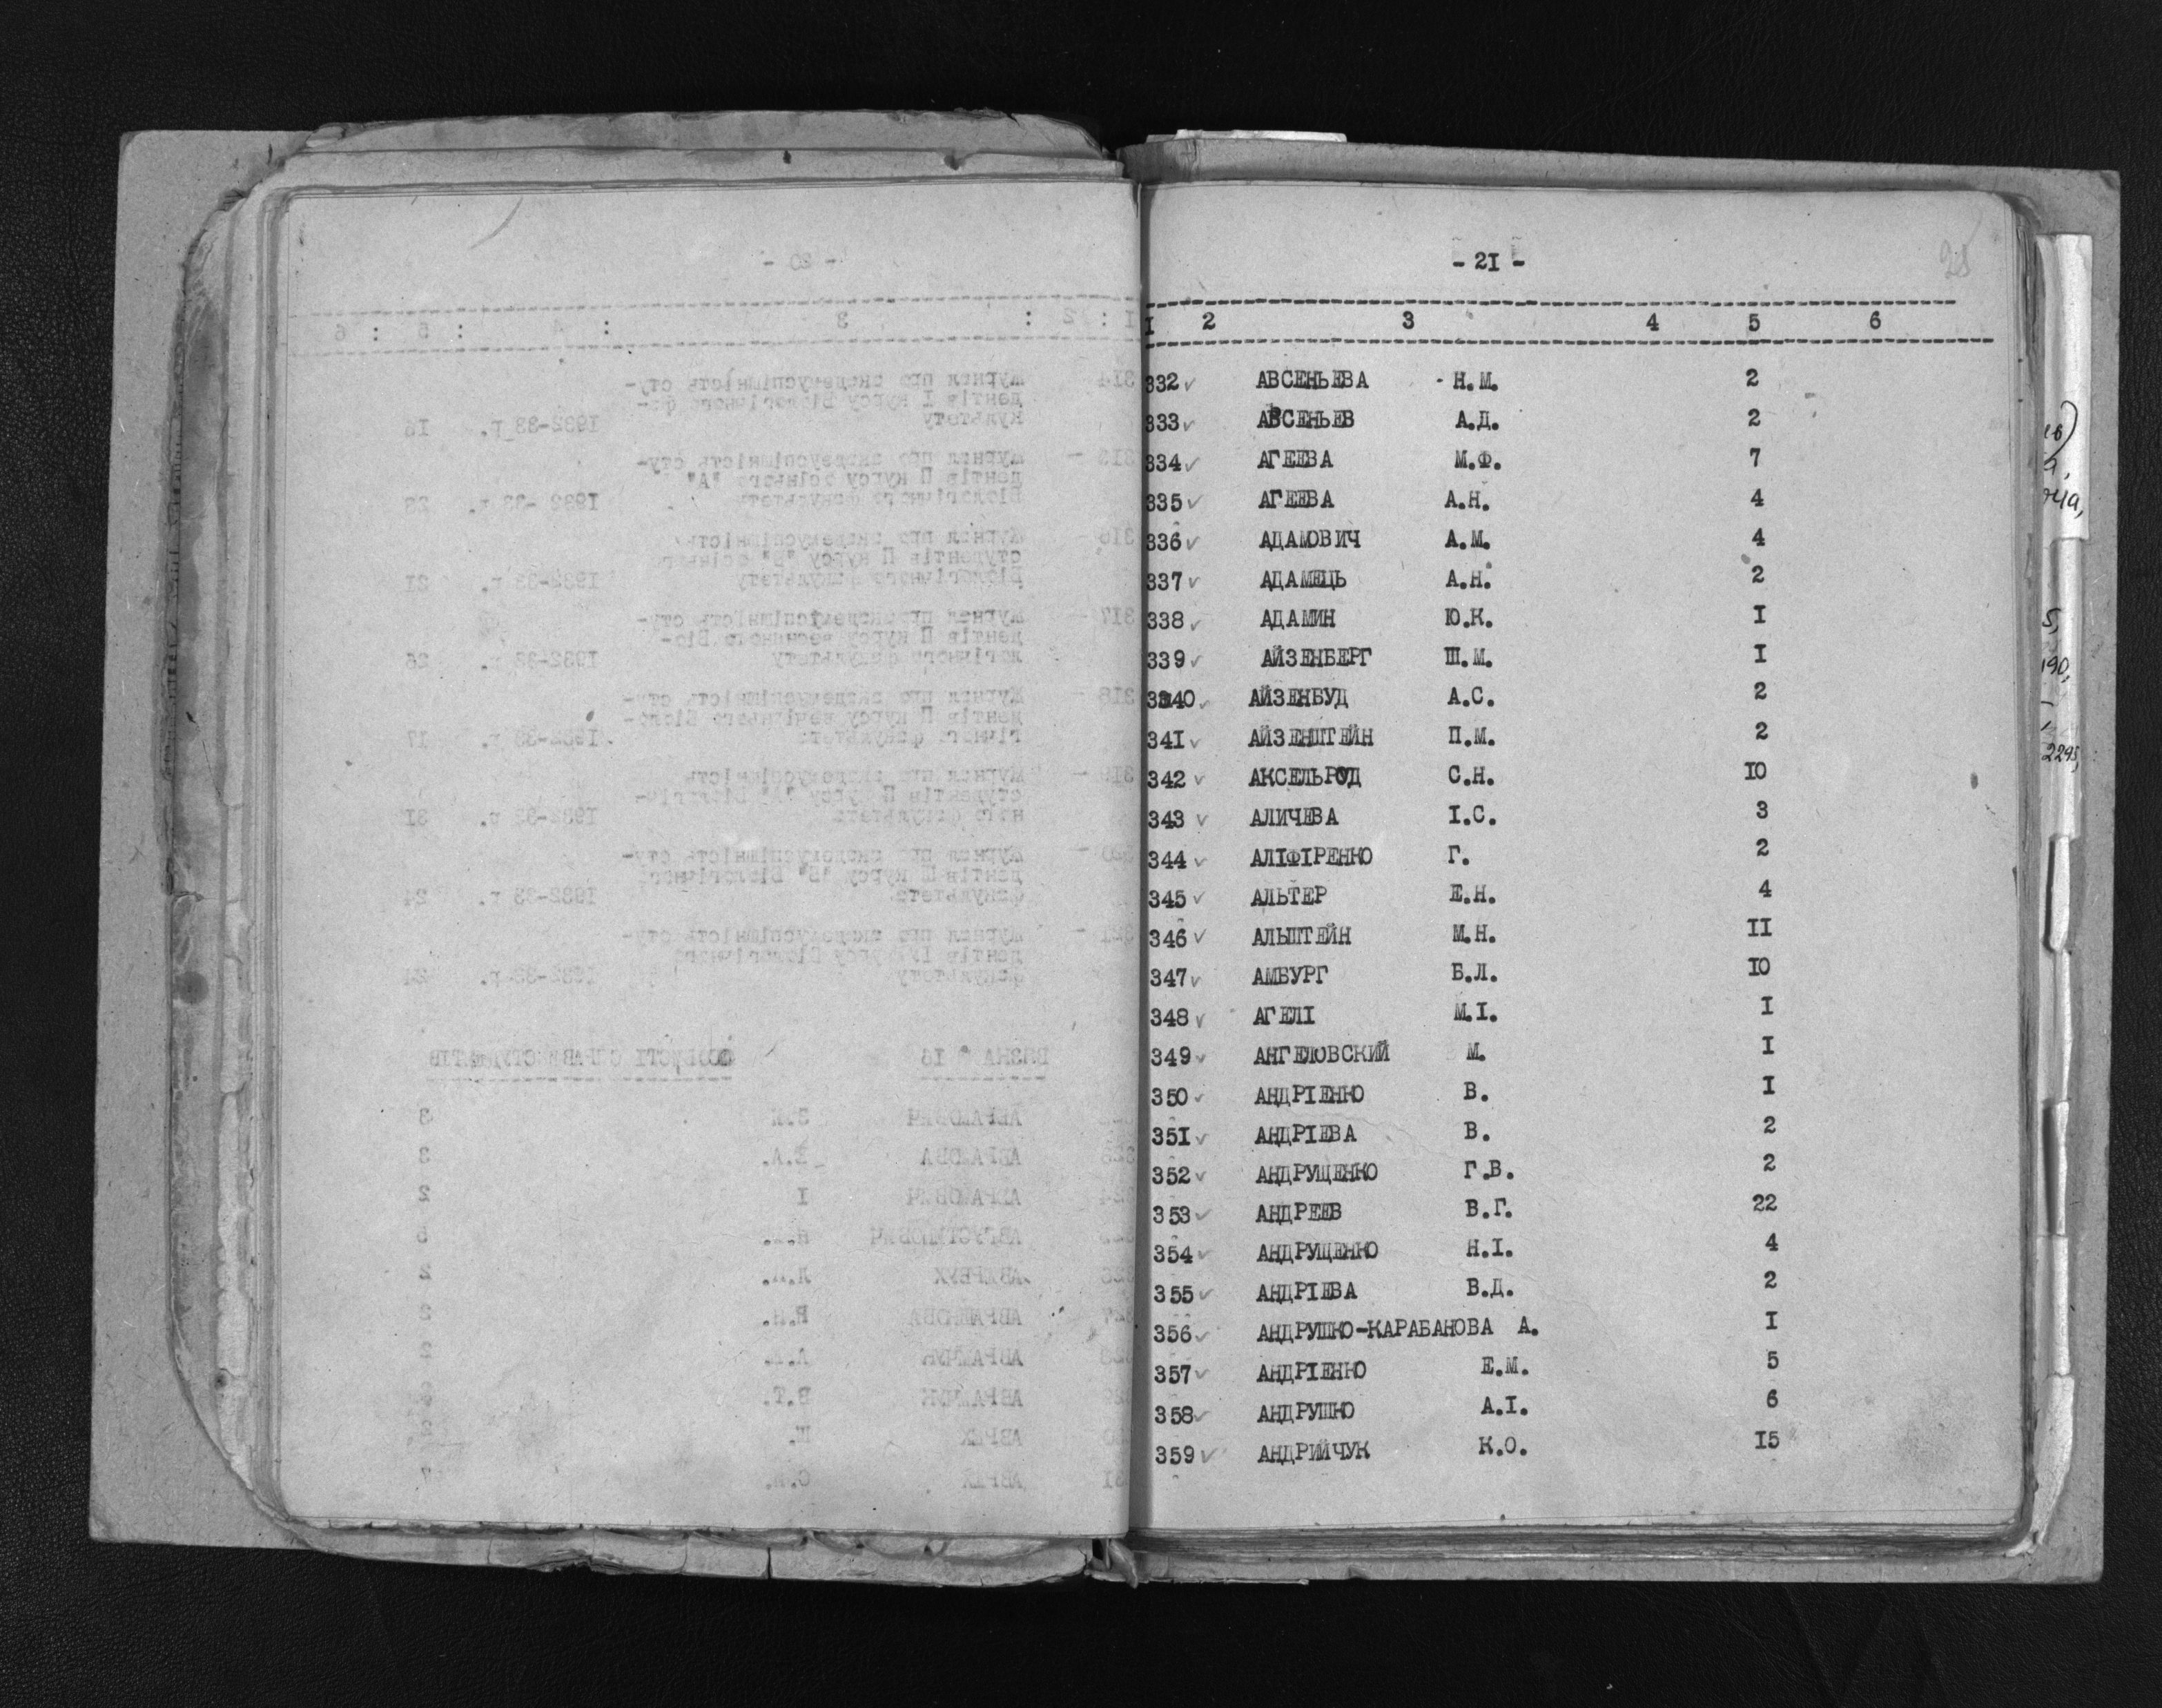 - 21 -
28
I 2 3 4 5 6
332 ✓ АВСЕНЬЕВА - Н.М. 2
333 ✓ АВСЕНЬЕВ А.Д. 2
334 ✓ АГЕЕВА М.Ф. 7
335 ✓ АГЕЕВА А.Н. 4
336 ✓ АДАМОВИЧ А.М. 4
337 ✓ АДАМЕЦЬ А.Н. 2
338 ✓ АДАМИН Ю.К. I
339 ✓ АЙЗЕНБЕРГ Ш.М. I
340 ✓ АЙЗЕНБУД А.С. 2
341 ✓ АЙЗЕНШТЕЙН П.М. 2
342 ✓ АКСЕЛЬРОД С.Н. IO
343 ✓ АЛИЧЕВА І.С. 3
344 ✓ АЛІФІРЕНКО Г. 2
345 ✓ АЛЬТЕР Е.Н. 4
346 ✓ АЛЬШТЕЙН М.Н. II
347 ✓ АМБУРГ Б.Л. IO
348 ✓ АГЕЛІ М.І. I
349 ✓ АНГЕЛОВСКИЙ М. I
350 ✓ АНДРІЕНКО В. I
351 ✓ АНДРІЕВА В. 2
352 ✓ АНДРУЩЕНКО Г.В. 2
353 ✓ АНДРЕЕВ В.Г. 22
354 ✓ АНДРУЩЕНКО Н.І. 4
355 ✓ АНДРІЕВА В.Д. 2
356 ✓ АНДРУШКО-КАРАБАНОВА А. I
357 ✓ АНДРІЕНКО Е.М. 5
358 ✓ АНДРУШКО А.І. 6
359 ✓ АНДРИЙЧУК К.О. I5
190,
2295,